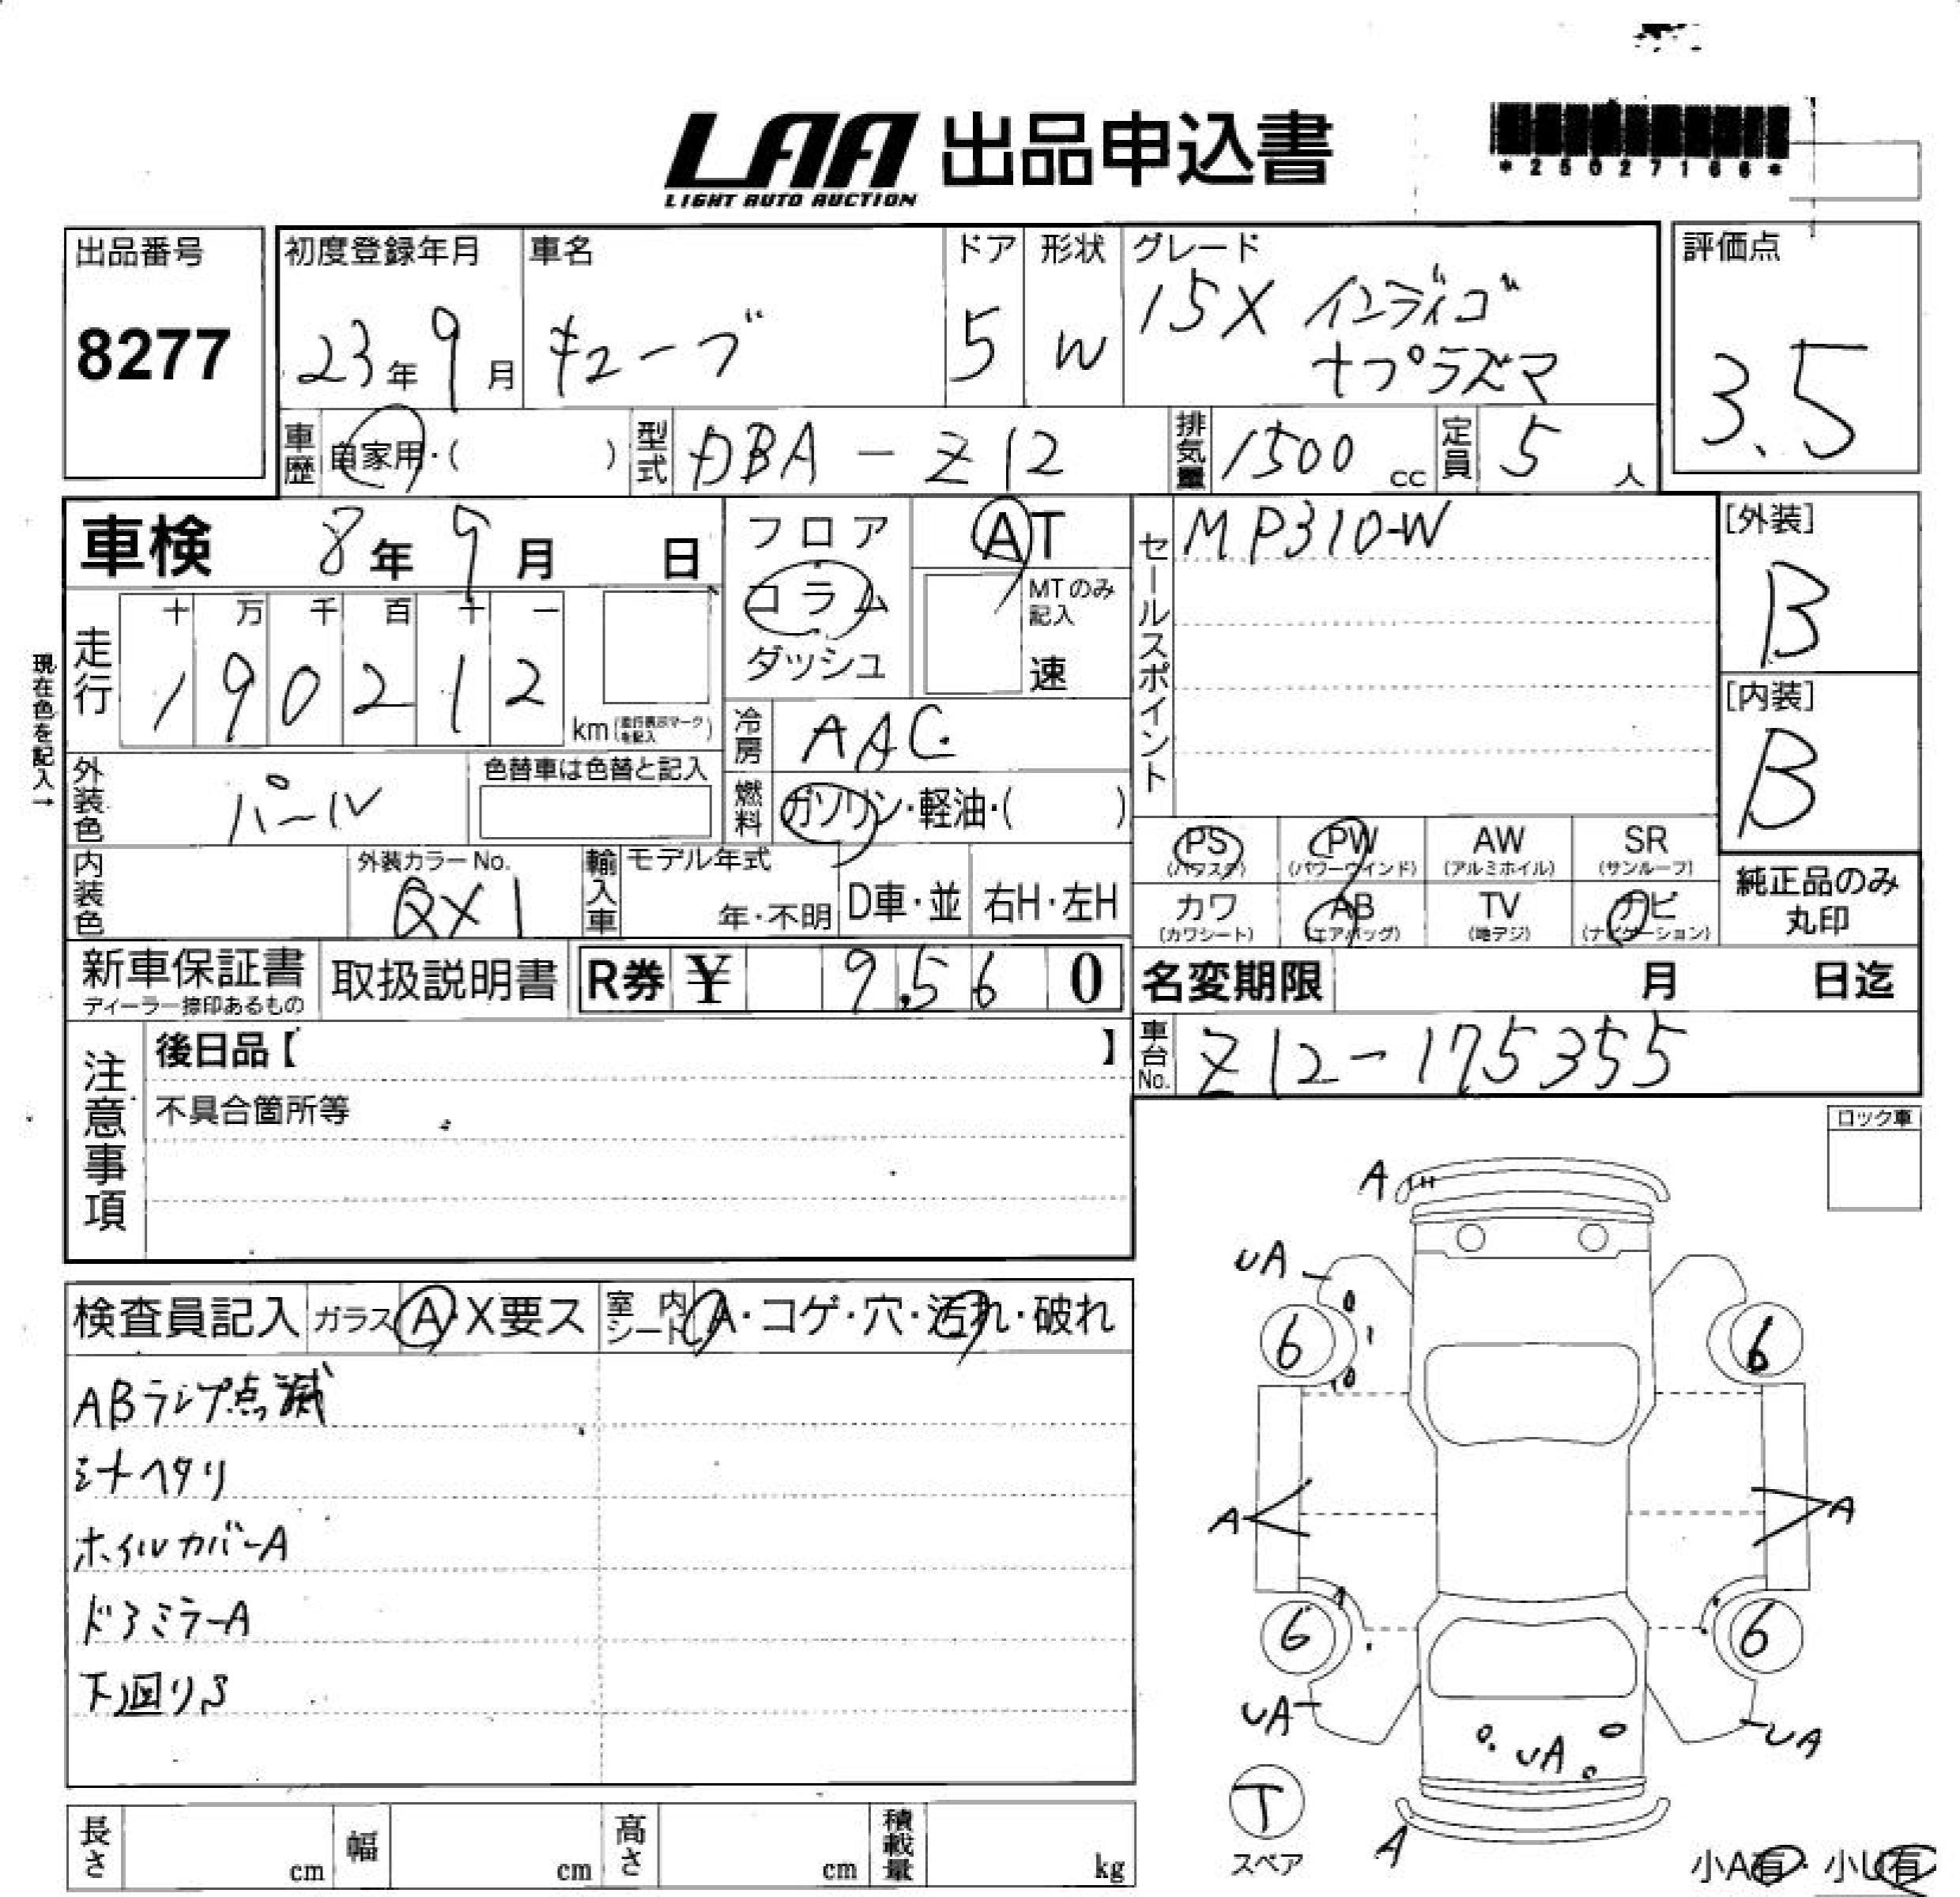 LAA 出品申込書
LIGHT AUTO AUCTION
出品番号
8277
初度登録年月
23年 9月
車名
キューブ
ドア
5
形状
W
グレード
15X インディゴ
+プラズマ
評価点
3.5
車歴
自家用・( )
型式
DBA-Z12
排気量
1500 cc
定員
5 人
車検 8年 9月 日
フロア
コラム
ダッシュ
AT
MTのみ
記入
速
セールスポイント
MP310-W
[外装]
B
[内装]
B
現在色を記入→
走行
十 万 千 百 十 一
1 9 0 2 1 2
km (走行表示マークを記入)
冷房
AAC
外装色
パール
色替車は色替と記入
燃料
ガソリン・軽油・( )
内装色
外装カラーNo.
QX1
輸入車
モデル年式
年・不明
D車・並
右H・左H
PS
(パワステ)
PW
(パワーウインド)
AW
(アルミホイル)
SR
(サンルーフ)
カワ
(カワシート)
AB
(エアバッグ)
TV
(地デジ)
ナビ
(ナビゲーション)
純正品のみ
丸印
新車保証書
ディーラー捺印あるもの
取扱説明書
R券 ¥ 9,560
名変期限 月 日迄
車台No.
Z12-175355
注意事項
後日品【 】
不具合箇所等
ロック車
検査員記入
ガラス A・X要ス
室内シート A・コゲ・穴・汚れ・破れ
ABランプ点滅
シートヘタリ
ホイルカバーA
ドアミラーA
下回りS
A
UA
6
6
A
A
6
6
UA
UA
UA
T
スペア
A
小A有・小U有
長さ cm
幅 cm
高さ cm
積載量 kg